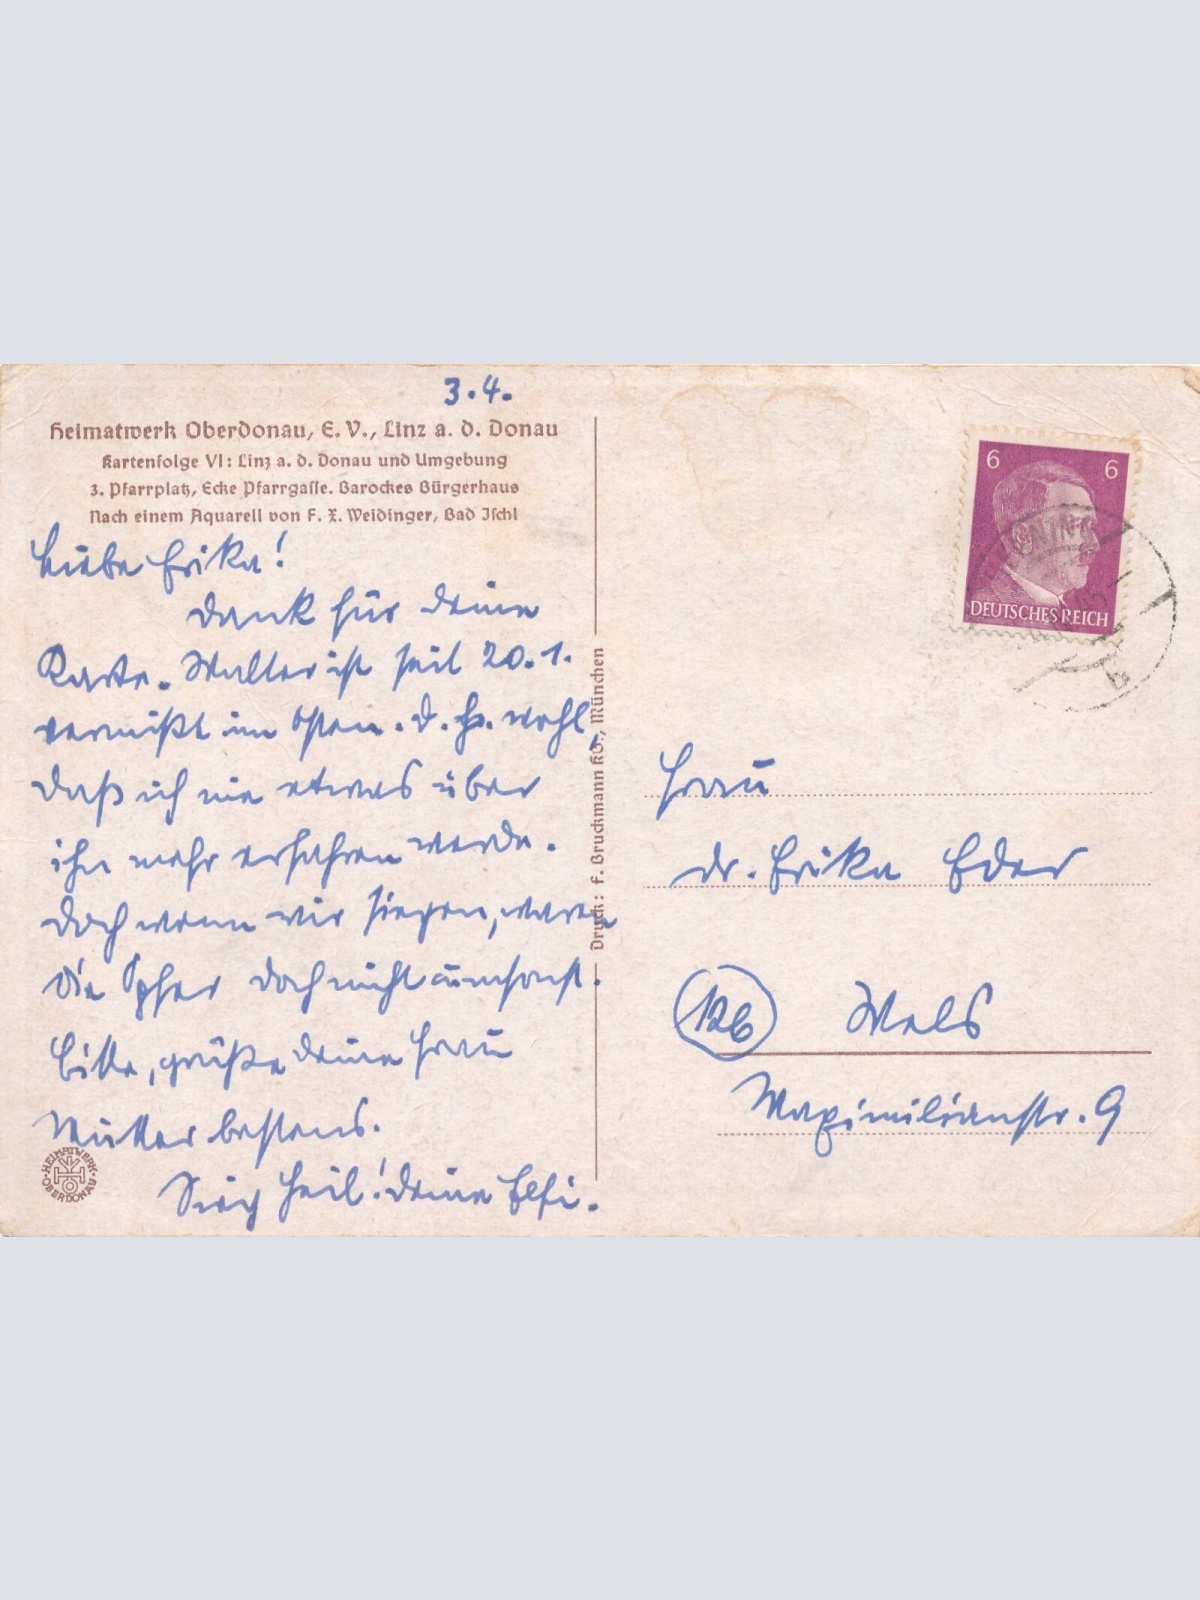 3.4.
Heimatwerk Oberdonau, E. V., Linz a. d. Donau
Kartenfolge VI: Linz a. d. Donau und Umgebung
3. Pfarrplatz, Ecke Pfarrgasse. Barockes Bürgerhaus
Nach einem Aquarell von F. X. Weidinger, Bad Ischl
Liebe Erika!
Dank für Deine
Karte. Walter ist seit 20.1.
vermißt im Osten. D. hs. wohl,
daß ich nie etwas über
ihn mehr erfahren werde.
Doch wenn wir siegen, waren
die Opfer doch nicht umsonst.
Bitte, grüße Deine Frau
Mutter bestens.
Sieg Heil! Deine Elfi.
HEIMATWERK OBERDONAU
Druck: F. Bruckmann KG., München
6 6
DEUTSCHES REICH
b
Frau
Dr. Erika Eder
12b Wels
Maximilianstr. 9